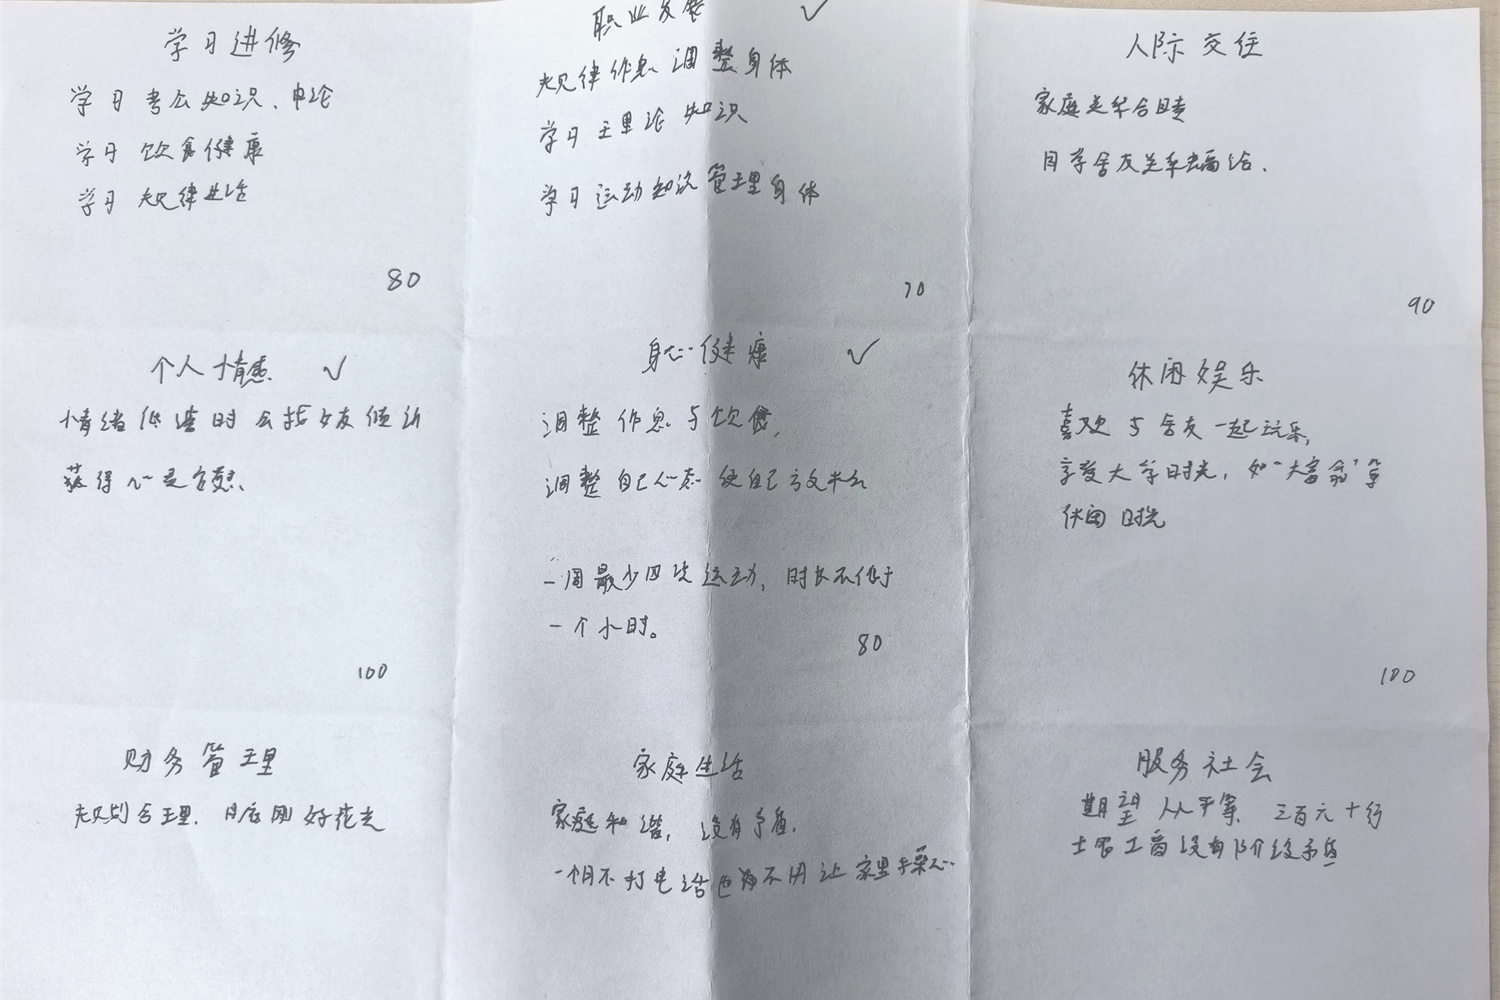 学习进修
学习考公知识、申论
学习饮食健康
学习规律生活
80
职业发展 ✓
规律作息 调整身体
学习理论知识
学习运动知识 管理身体
70
人际交往
家庭关系合睦
同学舍友关系
90
个人情感 ✓
情绪低谷时会找女友倾诉
获得心灵
100
身心健康 ✓
调整作息与饮食,
调整自己心态 使自己
一周最少四次运动,时长不低于
一个小时。
80
休闲娱乐
喜欢与舍友一起玩乐,
享受大学时光,如“大富翁”等
休闲时光
100
财务管理
规划合理. 月底刚好花光
家庭生活
家庭和谐,没有矛盾.
一个月不打电话也不用让家里操心
服务社会
期望人人平等、三百六十行
士农工商没有阶级矛盾